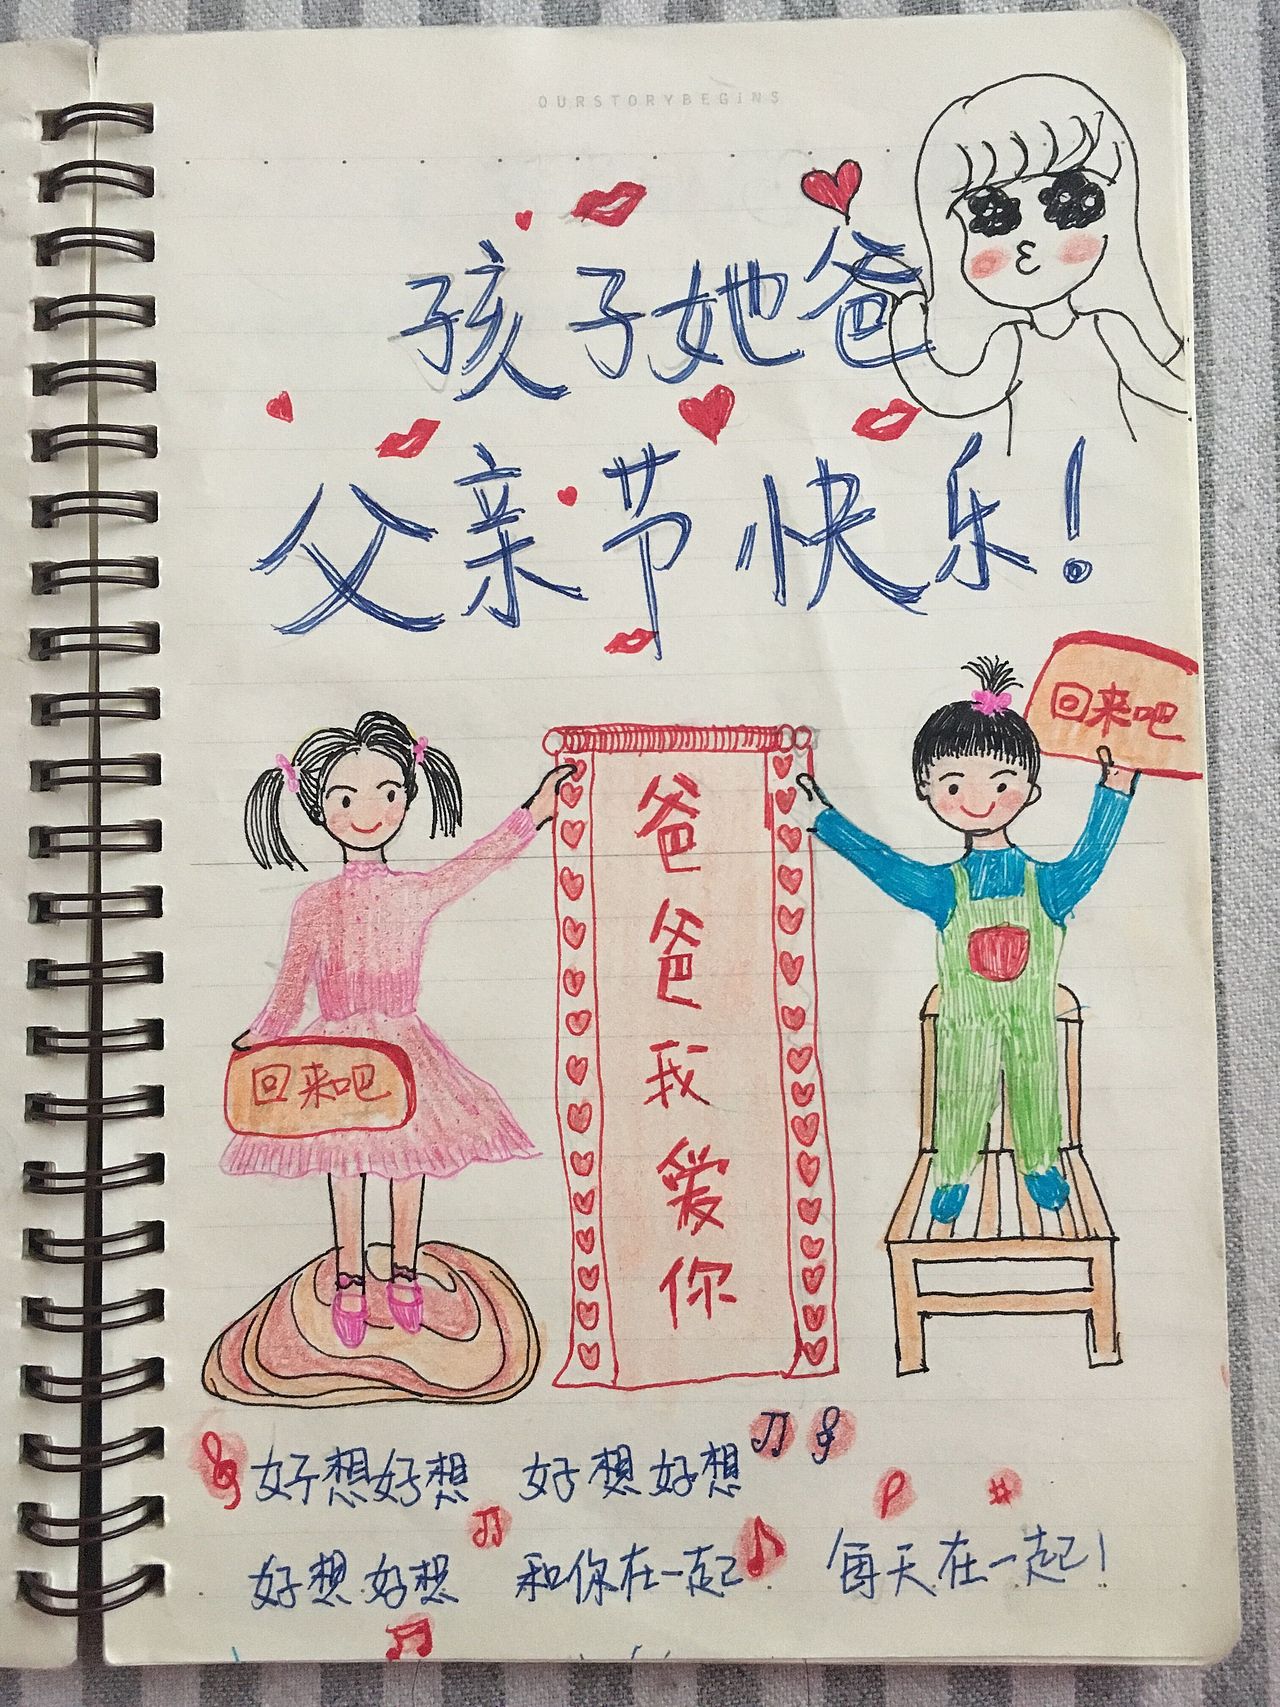 OURSTORYBEGINS
孩子她爸
父亲节快乐!
回来吧
爸爸我爱你
回来吧
好想好想 好想好想
好想好想 和你在一起 每天在一起!